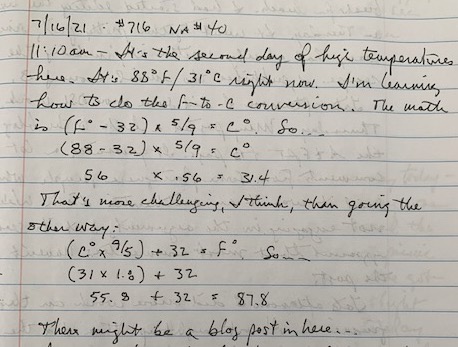 7/16/21 · #716 NA #40
11:10am – It's the second day of high temperatures
here. It's 88°F/31°C right now. I'm learning
how to do the F-to-C conversion. The math
is (F° - 32) x 5/9 = C° So...
(88 - 32) x 5/9 = C°
56 x .56 = 31.4
That's more challenging, I think, than going the
other way:
(C° x 9/5) + 32 = F° So...
(31 x 1.8) + 32
55.8 + 32 = 87.8
There might be a blog post in here...